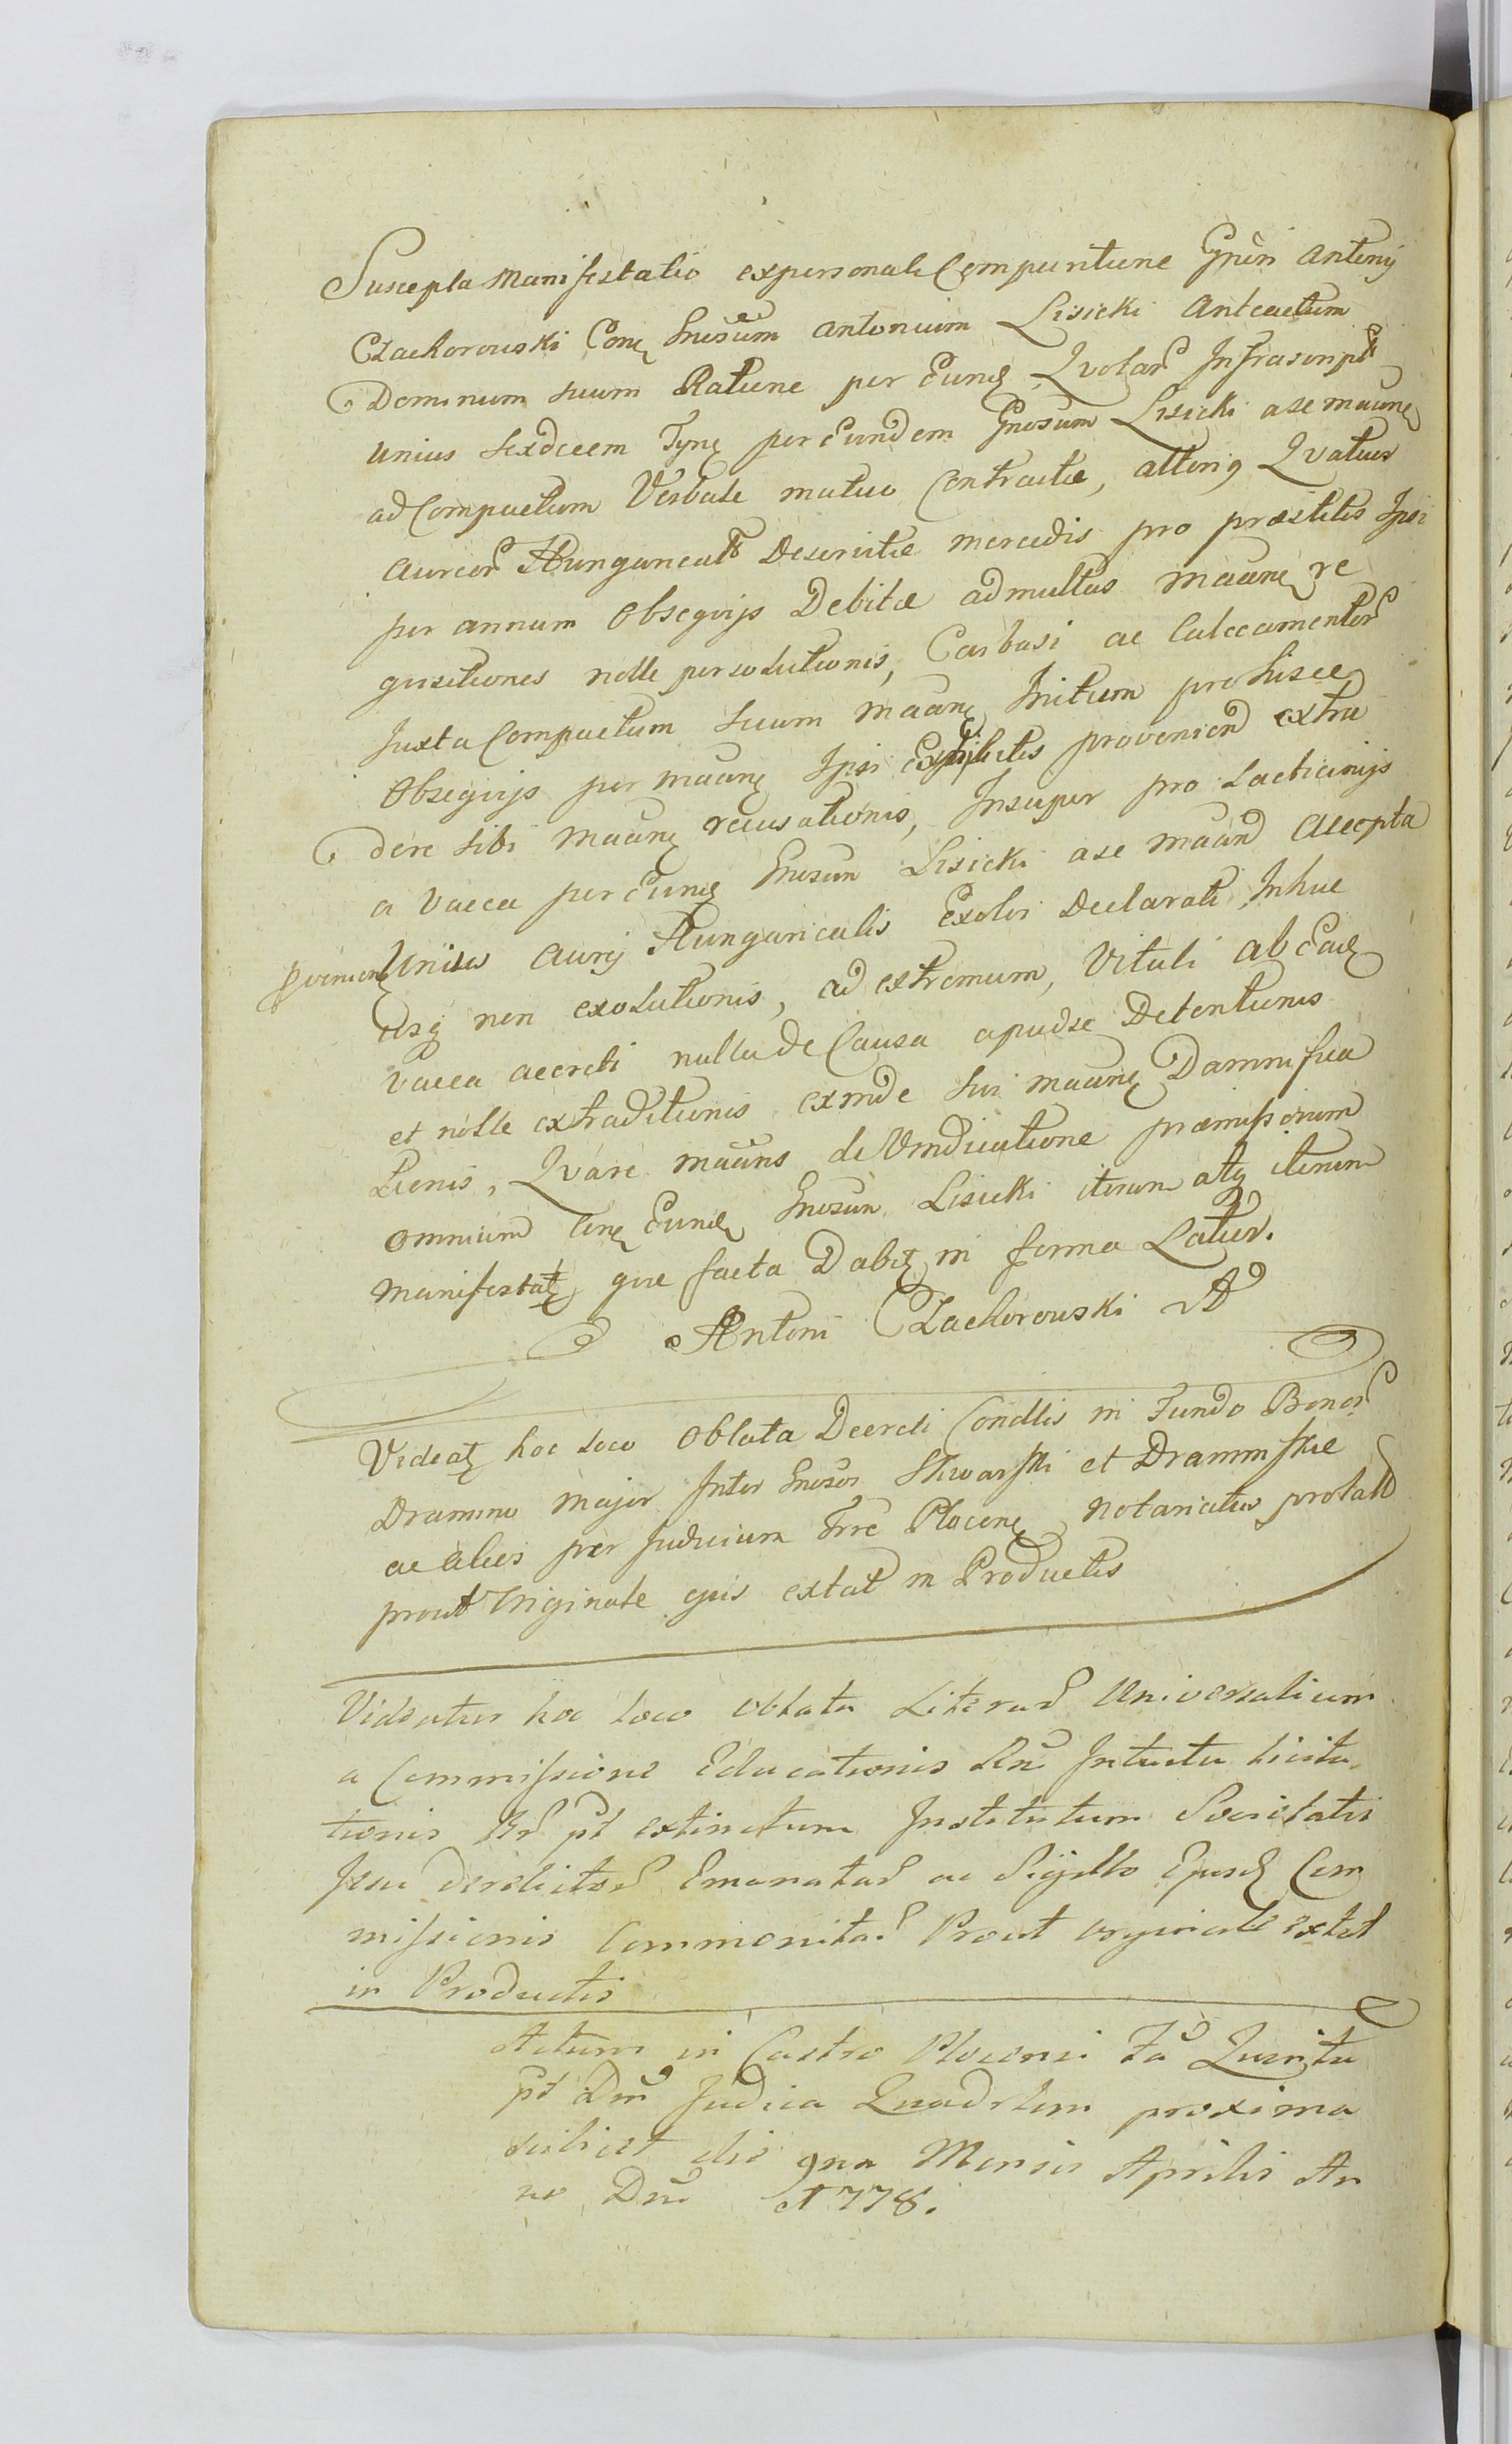 Suscepta Manifestatio ex personali Comparitione Gnēri Antonij
Czachorowski Con Gnosum Antonium Lisicki Anteactum
Dominum suum Ratione per Eund Qvotar Infrascript
unius sexdecem Tynf per Eundem Gnosum Lisicki a se maane
ad Compactum Verbale mutuo Contractæ, alterius Qvatuor
Aureor Hungarical Deservitæ mercedis pro præstitis Ipsi
per annum Obseqvijs Debitæ ad multas maane re
qvisitiones nolle persolutionis, Carbasi ac Calceamentor
Juxta Compactum suum maane Initum pro hisce
Obseqvijs per maane Ipsi Exhibitis provenien extra
dere sibi maane recusationis, Insuper pro Lacticinijs
a Vacca per Eund Gnosum Lisicki a se maan Accepta
provenien Unius Aurej Hungaricalis Exolvi Declarati, Inhuc
usq non exolutionis, ad extremum, Vituli ab Ead
Vacca accreti nulla de Causa apud se Detentionis
et nolle extraditionis exinde sui maane Damnifica
tionis, Qvare maans de Vindicatione præmissorum
omnium Con Eund Gnosum Lisicki iterum atq iterum
Manifestat que facta Dabit in forma Latior.
Antoni Czachorowski
Videat hoc loco Oblata Decreti Condlis in Fundo Bonor
Dramino Major Inter Gnosos Skwarski et Draminskie
ac Alios per Judicium Trre Plocen Notariatus prolat
prout Originale ejus extat in Productis
Videatur hoc loco Oblata Literar Universalium
a Commissione Educationis Rni Intuitu licita
tionis Rr pt extinctum Institutum Societatis
Jesu derelictor Emanatar ac Sigillo Ejusd Com
missionis Communitar Prout originale extat
in Productis
Actum in Castro Plocensi Fa Quinta
pt Dm Judica Quadrlem proxima
scilicet die 9na Mensis Aprilis An
no Dni 1778.